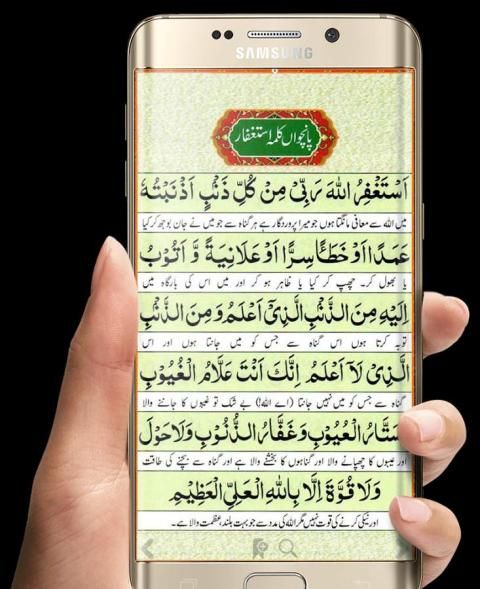 SAMSUNG
پانچواں کلمہ استغفار
اَسْتَغْفِرُ اللّٰهَ رَبِّیْ مِنْ كُلِّ ذَنْۢبٍ اَذْنَبْتُهٗ
میں اللہ سے معافی مانگتا ہوں جو میرا پروردگار ہے ہر گناہ سے جو میں نے جان بوجھ کر کیا
عَمَدًا اَوْ خَطَأً سِرًّا اَوْ عَلَانِیَةً وَّ اَتُوْبُ
یا بھول کر۔ چھپ کر کیا یا ظاہر ہو کر اور میں اس کی بارگاہ میں
اِلَیْهِ مِنَ الذَّنْۢبِ الَّذِیْٓ اَعْلَمُ وَمِنَ الذَّنْۢبِ
توبہ کرتا ہوں اس گناہ سے جس کو میں جانتا ہوں اور اس
الَّذِیْ لَآ اَعْلَمُ اِنَّكَ اَنْتَ عَلَّامُ الْغُیُوْبِ
گناہ سے جس کو میں نہیں جانتا (اے اللہ!) بے شک تو غیبوں کا جاننے والا
سَتَّارُ الْعُیُوْبِ وَغَفَّارُ الذُّنُوْبِ وَلَا حَوْلَ
اور عیبوں کا چھپانے والا اور گناہوں کا بخشنے والا ہے اور گناہ سے بچنے کی طاقت
وَلَا قُوَّةَ اِلَّا بِاللّٰهِ الْعَلِیِّ الْعَظِیْمِ
اور نیکی کرنے کی قوت نہیں مگر اللہ کی مدد سے جو بہت بلند، عظمت والا ہے۔